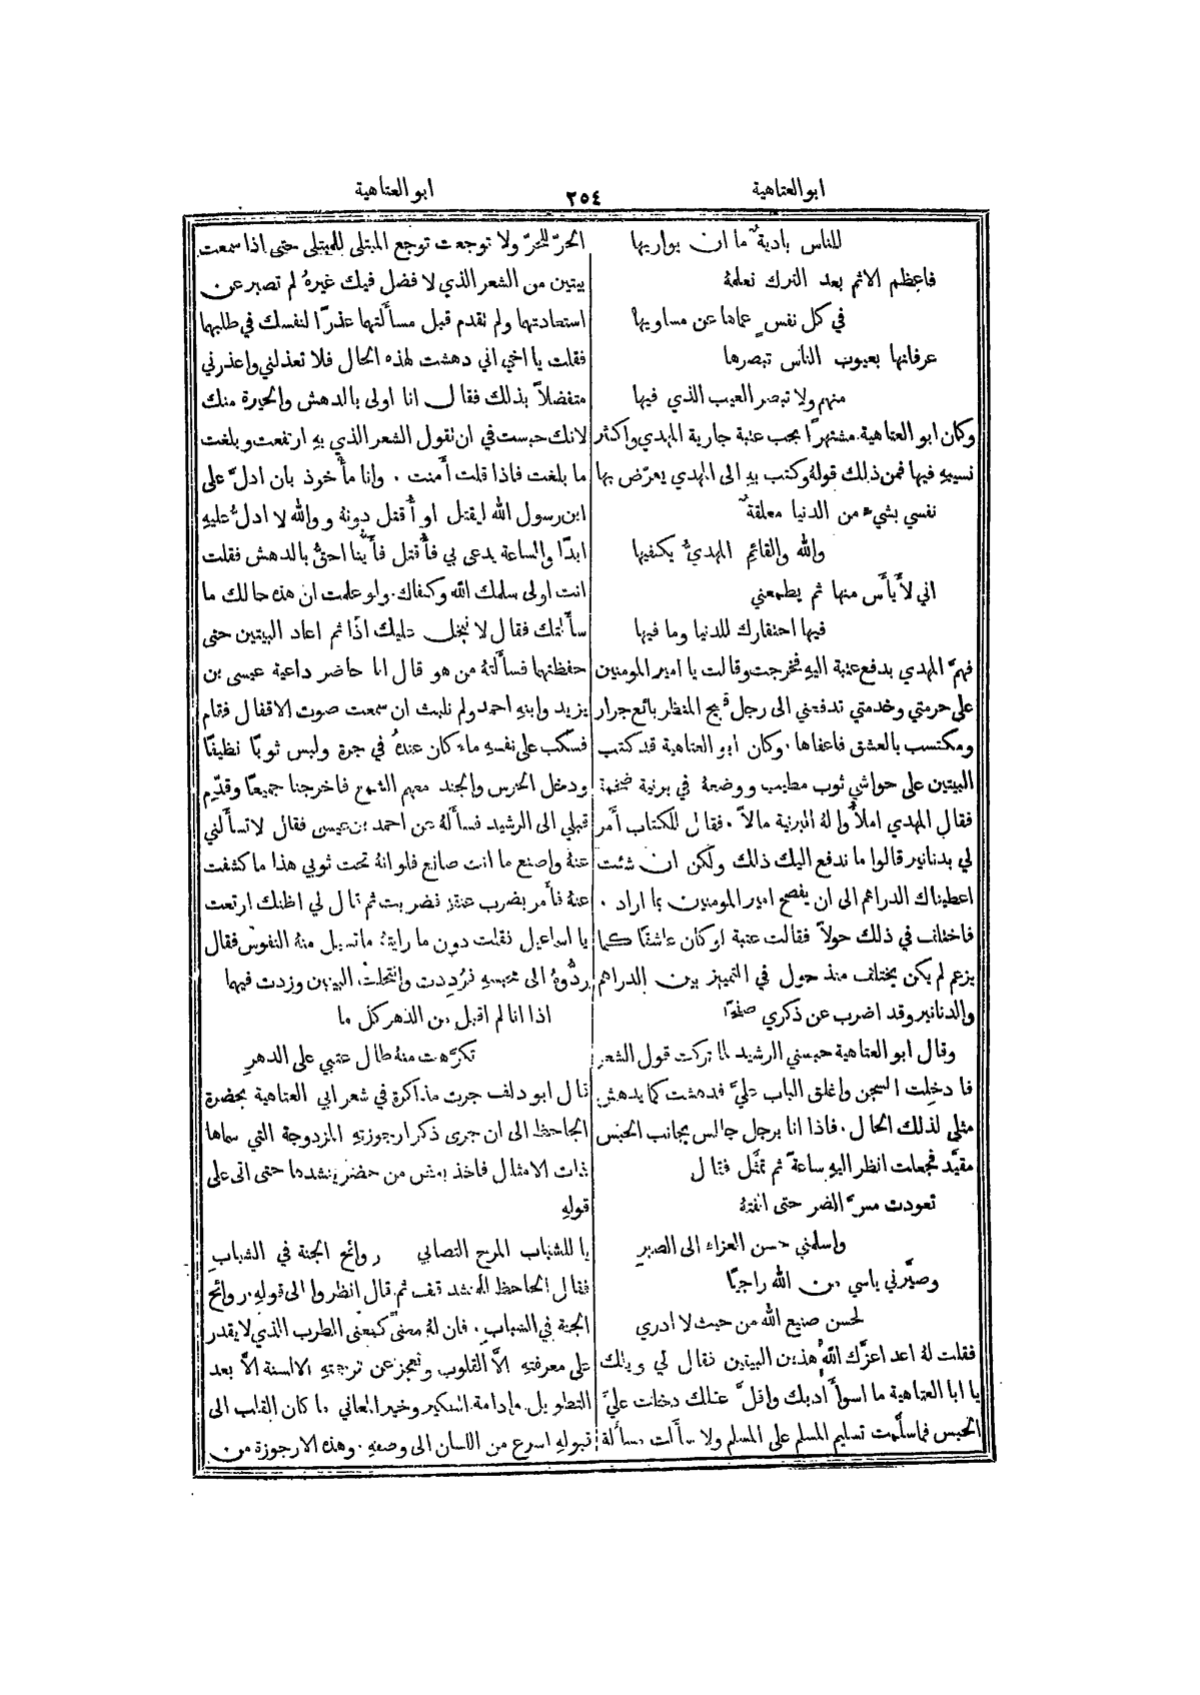 ابو العتاهية
٢٥٤
ابو العتاهية
للناس بادية ٌ ما ان يواريها
فاعظم الاثم بعد الترك نعلمهُ
في كل نفسٍ عماها عن مساويها
عرفانها بعيوب الناس تبصرها
منهم ولا تبصر العيب الذي فيها
وكان ابو العتاهية مشتهرًا بحب عتبة جارية المهدي واكثر
نسيبهِ فيها فمن ذلك قولهُ وكتب بهِ الى المهدي يعرّض بها
نفسي بشيء من الدنيا معلقة ٌ
والله والقائم المهديُّ يكفيها
اني لأيأس منها ثم يطمعني
فيها احتقارك للدنيا وما فيها
فهمَّ المهدي بدفع عتبة اليهِ فخرجت وقالت يا امير المومنين
على حرمتي وخدمتي تدفعني الى رجل قبيح المنظر بائع جرار
ومكتسب بالعشق فاعفاها . وكان ابو العتاهية قد كتب
البيتين على حواشي ثوب مطيب ووضعهُ في برنية ضخمة
فقال المهدي املأُوا لهُ البرنية مالاً . فقال للكتاب أمر
لي بدنانير قالوا ما ندفع اليك ذلك ولكن ان شئت
اعطيناك الدراهم الى ان يفصح امير المومنين بما اراد .
فاختلف في ذلك حولاً فقالت عتبة لو كان عاشقًا كما
يزعم لم يكن يختلف منذ حول في التمييز بين الدراهم
والدنانير وقد اضرب عن ذكري صفحًا
وقال ابو العتاهية حبسني الرشيد لما تركت قول الشعر
فأدخلت السجن واغلق الباب عليَّ فدهشت كما يدهش
مثلي لذلك الحال . فاذا انا برجل جالس بجانب الحبس
مقيَّد فجعلت انظر اليهِ ساعةً ثم تمثَّل فقال
تعودت مسَّ الضر حتى الفتهُ
واسلمني حسن العزاء الى الصبرِ
وصيَّرني ياسي من الله راجيًا
لحسن صنيع الله من حيث لا ادري
فقلت لهُ اعد اعزَّك اللهُ هذين البيتين فقال لي ويلك
يا ابا العتاهية ما اسوأَ أدبك واقلَّ عقلك دخلت عليَّ
الحبس فما سلَّمت تسليم المسلم على المسلم ولا سأَلت مسألة
الحرّ للحرّ ولا توجعت توجع المبتلى للمبتلى حتى اذا سمعت
بيتين من الشعر الذي لا فضل فيك غيرهُ لم تصبر عن
استعادتهما ولم تقدم قبل مسأَلتهما عذرًا لنفسك في طلبهما
فقلت يا اخي اني دهشت لهذه الحال فلا تعذلني واعذرني
متفضلاً بذلك فقال انا اولى بالدهش والحيرة منك
لانك حبست في ان تقول الشعر الذي بهِ ارتفعت وبلغت
ما بلغت فاذا قلت أَمنت . وانا مأخوذ بان ادلَّ على
ابن رسول الله ليقتل او أُقتل دونهُ ووالله لا ادلُّ عليهِ
ابدًا والساعة يدعى بي فأُقتل فأَيُّنا احقُّ بالدهش فقلت
انت اولى سلمك الله وكفاك . ولو علمت ان هذه حالك ما
سأَلتك فقال لا نبخل عليك اذًا ثم اعاد البيتين حتى
حفظتهما فسأَلتهُ من هو قال انا حاضر داعية عيسى بن
يزيد وابنهِ احمد ولم نلبث ان سمعت صوت الاقفال فقام
فسكب على نفسهِ ماء كان عندهُ في جرة ولبس ثوبًا نظيفًا
ودخل الحرس والجند معهم الشموع فاخرجنا جميعًا وقدّم
قبلي الى الرشيد فسأَلهُ عن احمد بن عيسى فقال لا تسأَلني
عنهُ واصنع ما انت صانع فلو انهُ تحت ثوبي هذا ما كشفت
عنهُ فأَمر بضرب عنقهِ فضربت ثم قال لي اظنك ارتعت
يا اسماعيل فقلت دون ما رايتهُ ما تسيل منهُ النفوس فقال
ردُّوهُ الى محبسهِ فرُددت وانتحلت البيتين وزدت فيهما
اذا انا لم اقبل من الدهر كل ما
تكرَّهت منهُ طال عتبي على الدهرِ
قال ابو دلف جرت مذاكرة في شعر ابي العتاهية بحضرة
الجاحظ الى ان جرى ذكر ارجوزتهِ المزدوجة التي سماها
ذات الامثال فاخذ بعض من حضر ينشدها حتى اتى على
قولهِ
يا للشباب المرح التصابي روائح الجنة في الشبابِ
فقال الجاحظ للمنشد قف ثم قال انظروا الى قولهِ . روائح
الجنة في الشباب . فان لهُ معنىً كمعنى الطرب الذي لا يقدر
على معرفتهِ الاَّ القلوب وتعجز عن ترجمتهِ الالسنة الاَّ بعد
التطويل وادامة التفكير وخير المعاني ما كان القلب الى
قبولهِ اسرع من اللسان الى وصفهِ . وهذه الارجوزة من